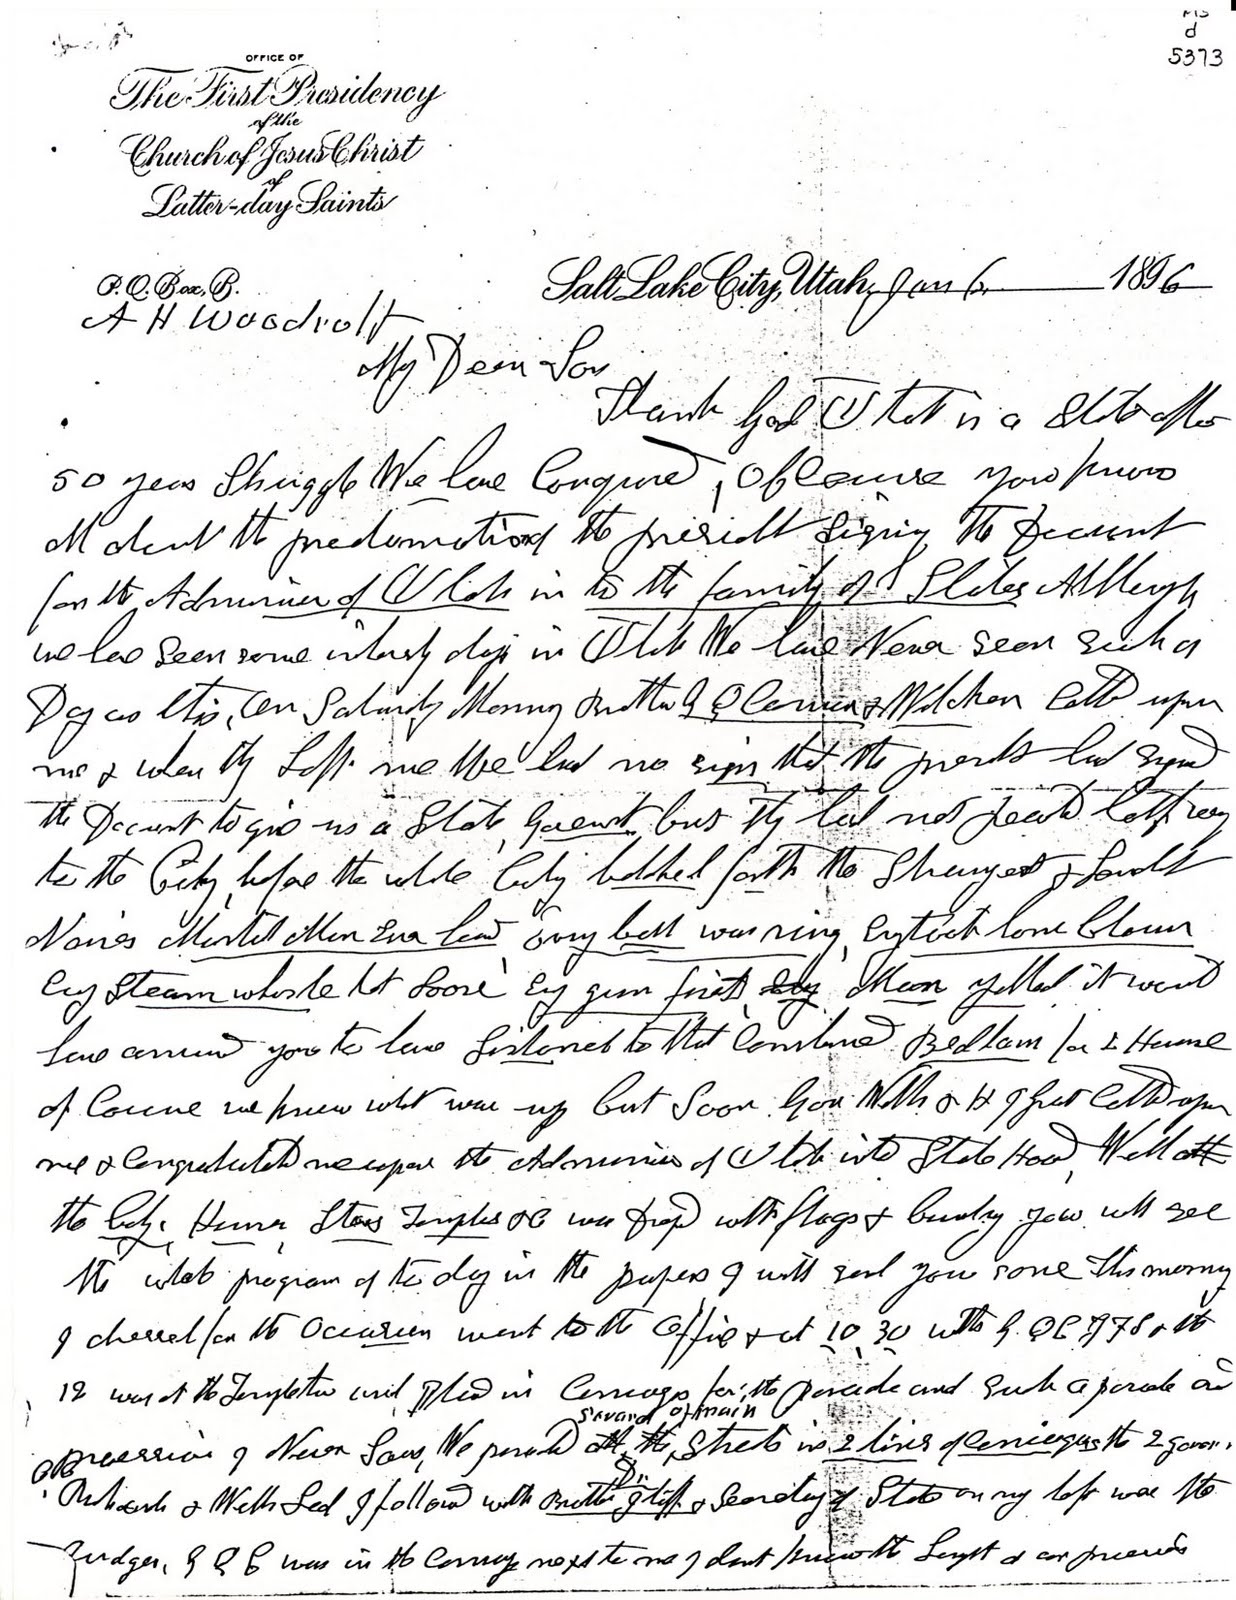 MS
d
5373
OFFICE OF
The First Presidency
of the
Church of Jesus Christ
of
Latter-day Saints
P.O. Box, B.
Salt Lake City, Utah, Jan 6, 1896
A H Woodruff
My Dear Son
Thank God Utah is a State after
50 years Struggle We have Conqured, Of Course you know
all about the of the president Signing the Document
for the Admission of Utah in to the family of States Although
we have Seen some days in Utah We have Never Seen Such a
Day as this, On Saturday Morning Brother G Q Cannon & Calld upon
me & when they Left me We had no sign that the had Signed
the Document to give us a State but they had not half way
to the City before the whole City belched forth the Strangest & Loudest
Noises Mortal Man Ever heard Evry bell was ring,
Evry Steam whistle let Loose Evry gun fired Evry Man yelled it would
have amused you to have Listened to that Combined Bedlam for 2 Hours
of Course we knew what was up but Soon Gov Wells & H J Grant Calld upon
me & Congratulated me upon the Admission of Utah into State Hood, Well
the City, Homes, Stores Temples &c was with flags & you will see
the whole program of the day in the papers I will send you some This morning
I dressed for the Occasion went to the Office & at 10,30 with G. Q C & J F S & the
12 was at the Templeton until in Carriages for the parade and Such a parade and
Procession I Never Saw, We the Streets in 2 lines of Carriages the 2 govors
Several of main
& Wells Led I followed with Brother & Secretary of State on my left was the
Dr.
Judges, G Q C was in the Carriage next to me I dont know the Length of our